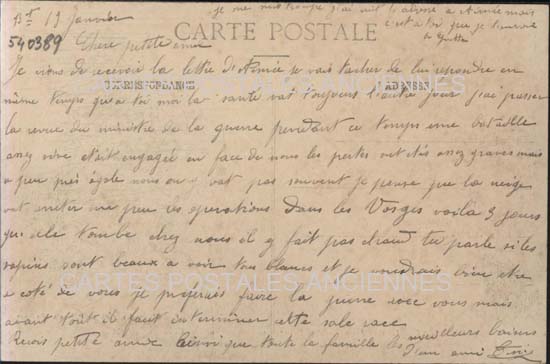 Bt 19 Janvier
je me suis trompé j'ai mit l'adresse a Aimée mais
c'est a toi que je l'envoie
540389
CARTE POSTALE
Chere petite amie
Je viens de recevoir la lettre d'Aimée je vais tacher de lui repondre en
CORRESPONDANCE
ADRESSE
même temps qu'a toi moi la santé vat toujours l'autre jour j'ai passer
la revue du ministre de la guerre pendant ce temps une bataille
assez vive etait engagée en face de nous les pertes ont étés assez graves mais
a peu près égale nous on vat pas souvent je pense que la neige
vat arreter un peu les operations dans les Vosges voila 3 jours
qu'elle tombe chez nous il y fait pas chaud tu parle si les
sapins sont beaux a voir tous blancs et je voudrais bien etre
a coté de vous je préferais faire la guerre avec vous mais
avant tout il faut exterminer cette sale race
Recois petite amie ainsi que toute la famille les meilleurs baisers
d'un ami
CARTES POSTALES ANCIENNES
CARTES POSTALES ANCIENNES